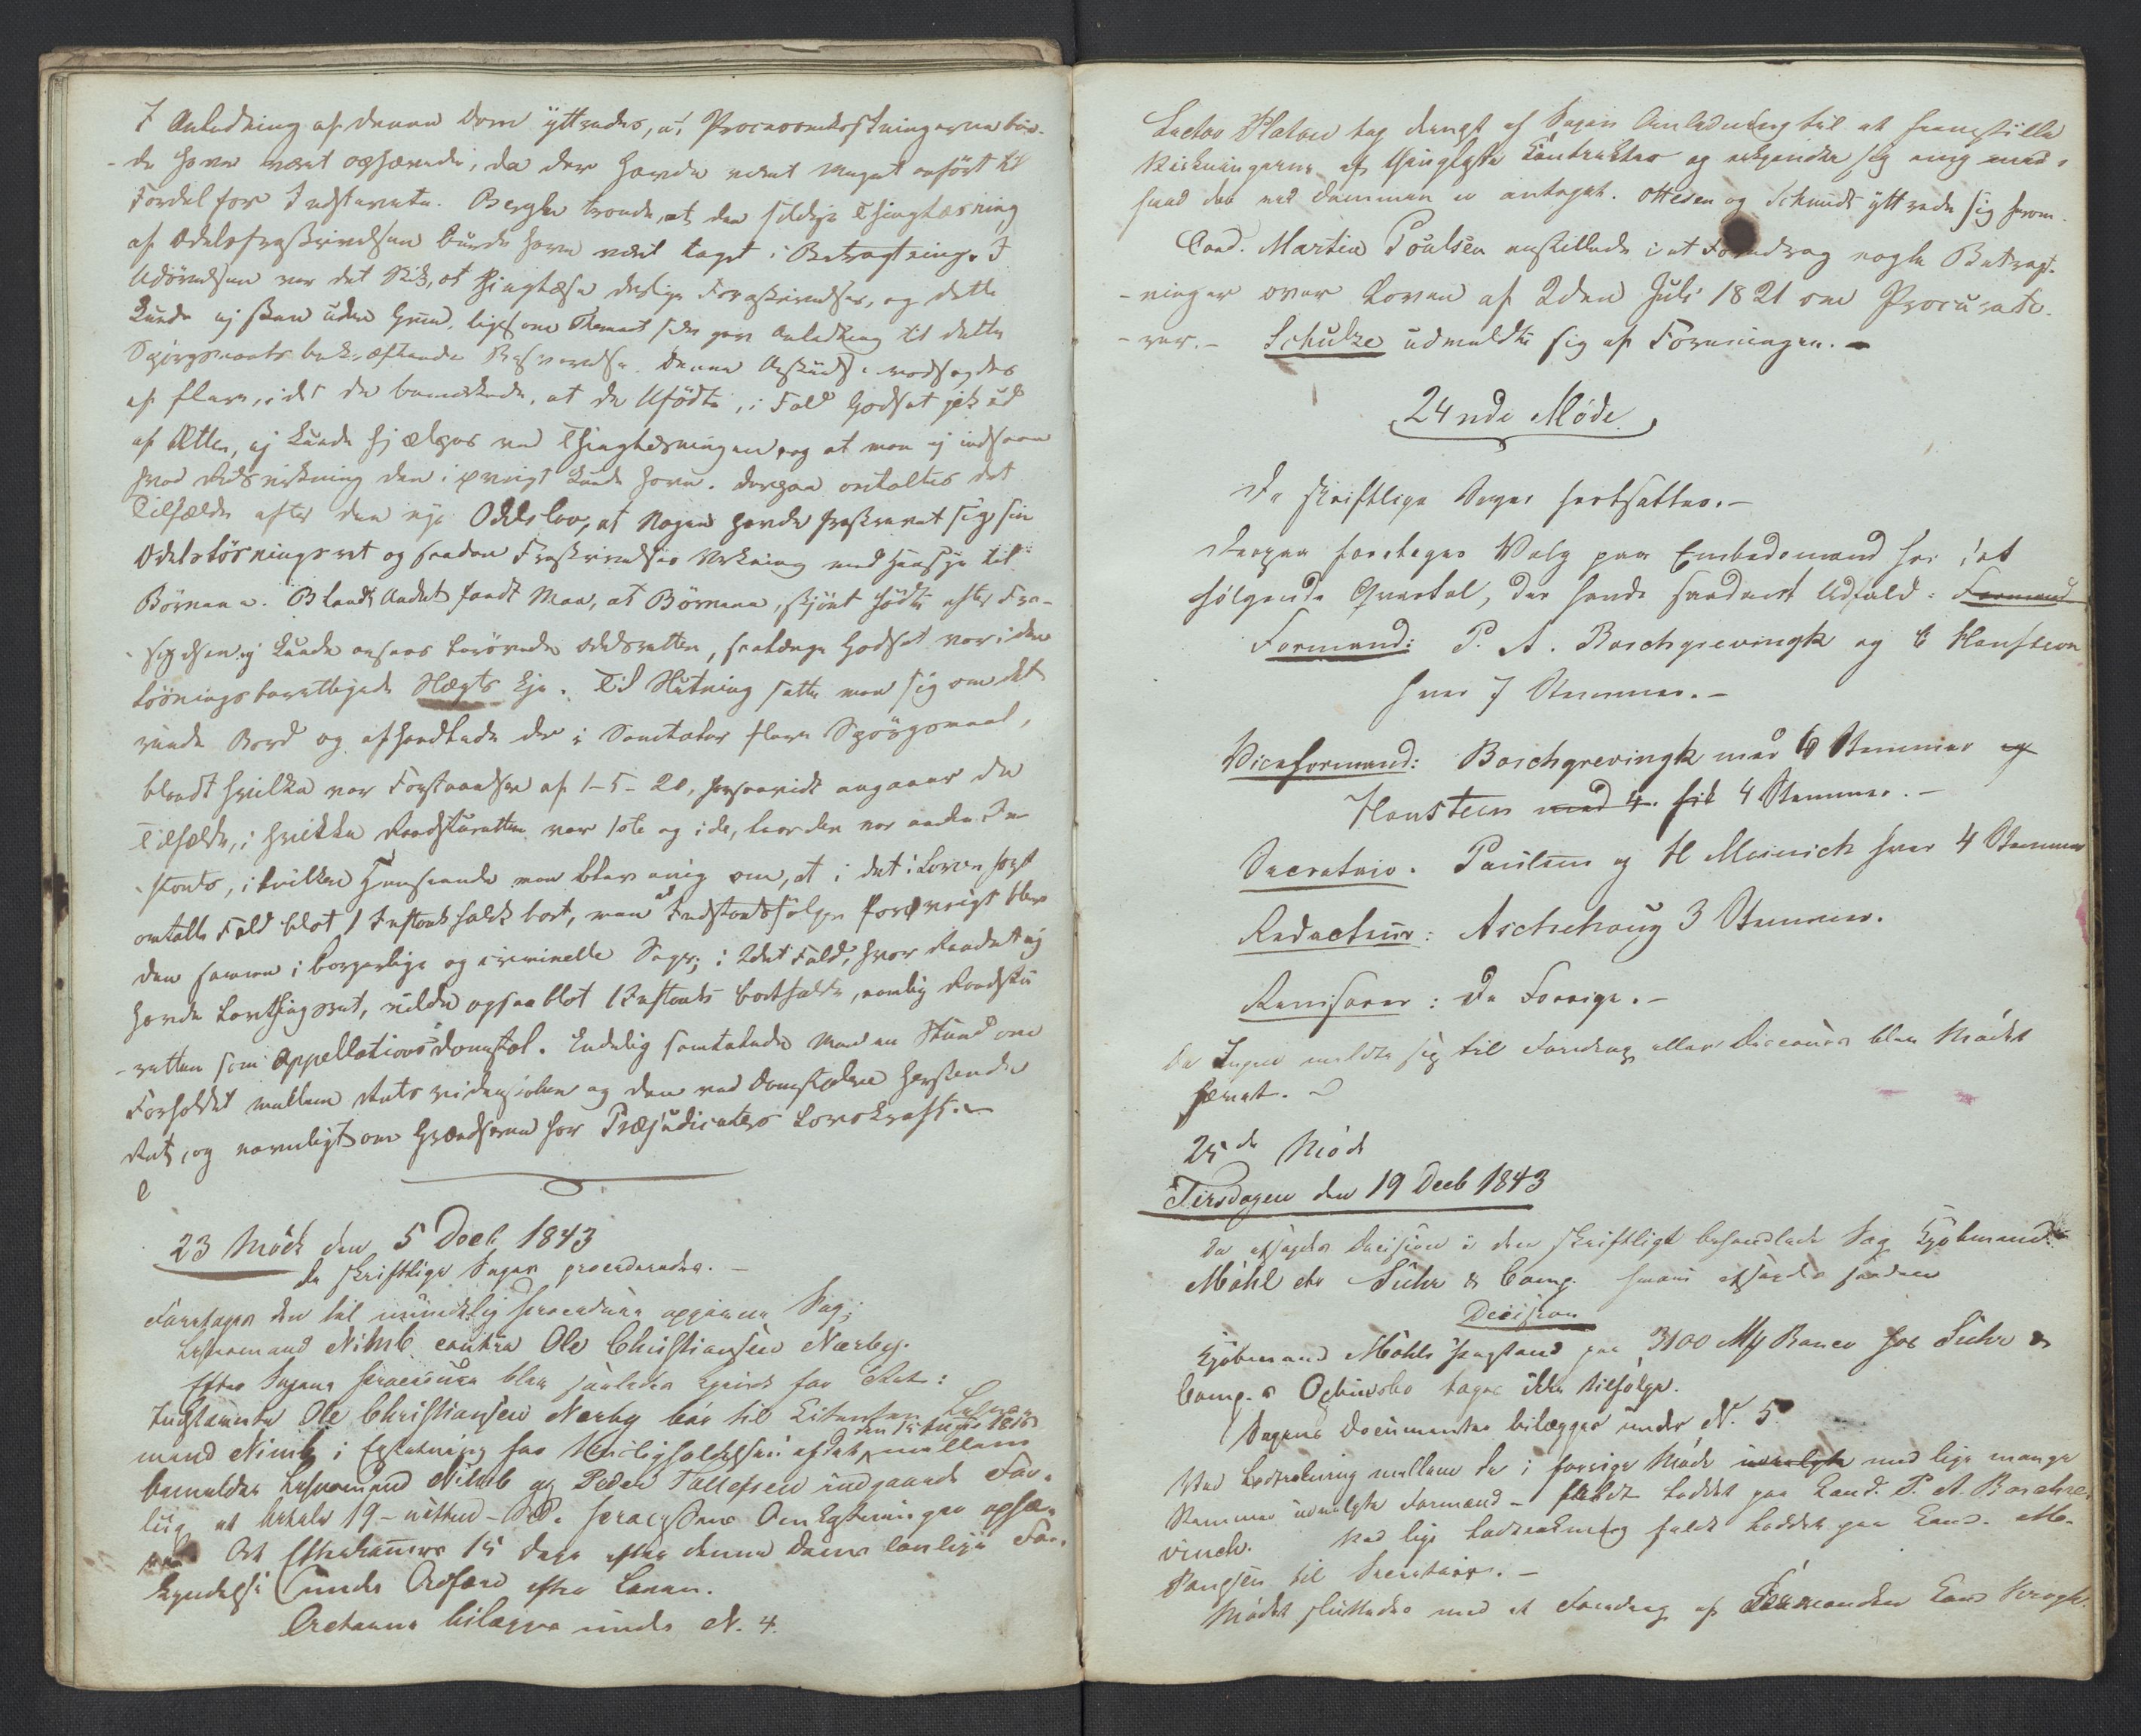 I Anledning af denne Dom yttredes, at Procesomkostningerne bur-
-de have været ophævede, da der havde været meget anført til
Fordel for Indstævnte. Bergh troede, at den sildige Thinglæsning
af Odelsfraskrivelsen burde have været taget i Betragtning. I
Udøvelsen var det Skik, at thinglæse deslige Fraskrivelser, og dette
kunde ej skee uden Grund, ligesom Skemaet selv gav Anledning til dette
Spørgsmaals bekræftende Besvarelse. Denne Anskuelse modsagdes
af flere, idet de bemærkede, at de Ufødte, i Fald Godset gik ud
af Ætten, ej kunde hjælpes ved Thinglæsningen, og at man ej indsaae
hvad Retsvirkning den i øvrigt kunde have. Derpaa omtaltes det
Tilfælde efter den nye Odelslov, at Nogen havde fraskrevet sig sin
Odelsløsningsret og saadan Fraskrivelses Virkning med Hensyn til
Børnene. Blandt Andet fandt Man, at Børnene, skjønt fødte efter Fra-
-sigelsen, ej kunde ansees berøvede Odelsretten, saalænge Godset var i den
løsningsberettigede Slægts Eje. Til Slutning satte man sig om det
runde Bord og afhandlede der i Samtaler flere Spørgsmaal,
blandt hvilke var Forstaaelsen af 1-5-20, forsaavidt angaaer de
Tilfælde, i hvilke Raadstueretten var 1ste og i de, hvor den var anden In-
-stants, i hvilken Henseende man blev enig om, at i det i Loven først
omtalte Fald blot 1 Instants faldt bort, men at Instantsfølgen forøvrigt blev
den samme i borgerlige og criminelle Sager; i 2det Fald, hvor Raadet ej
havde Lavthingsret, vilde ogsaa blot 1 Instants bortfalde, nemlig Raadstue
-retten som Appellationsdomstol. Endelig samtalede Man en Stund om
Forholdet mellem Retsvidenskaben og den ved Domstolene herskende
Ret, og navnligt om Grændserne for Præjudicaters Lovskraft. -
23 Møde den 5 Decb 1843
De skriftlige Sager procederedes. -
Foretages den til mundtlig Procedure opgivne Sag;
Lehnsmand Nimb contra Ole Christiansen Nærby.
Efter Sagens Procedure blev saaledes kjendt for Ret:
Indstævnte Ole Christiansen Nærby bør til Citanten Lehns-
mand Nimb i Erstatning for Misligholdelsen af det mellem
bemeldte Lehnsmand Nimb og Peder Tollefsen indgaaede For-
lig at betale 19 - nitten - Spd. Processens Omkostninger ophæ-
ves. At Efterkommes 15 Dage efter denne Doms lovlige For-
kyndelse under Adfærd efter Loven.
Acterne bilægges under N. 4.
Lector Platou tog dernæst af Sagen Anledning til at fremstille
Virkningerne af thinglyste Contrakter og erkjendte sig enig med,
hvad der ved Dommen er antaget. Ottesen og Schmidt yttrede sig herom.
Cand. Martin Poulsen anstillede i et Foredrag nogle Betragt-
-ninger over Loven af 2den Juli 1821 om Procurato-
-rer. - Schulze udmeldte sig af Foreningen. -
24nde Møde
De skriftlige Sager fortsattes. -
Derpaa foretoges Valg paa Embedsmænd for det
følgende Qvartal, der havde saadant Udfald: Formand
Formand: P. A. Borchgrevingk og Hansteen
hver 7 Stemmer. -
Viceformand: Borchgrevingk med 6 Stemmer og
Hansteen med 4. fik 4 Stemmer. -
Secretair. Paulsen og H Meinich hver 4 Stemmer
Redacteur: Aschehoug 3 Stemmer.
Revisorer: De Forrige. -
Da Ingen meldte sig til Foredrag eller Discours blev Mødet
hævet.
25de Møde
Tirsdagen den 19 Decb 1843
Da afsagdes Decision i den skriftligt behandlede Sag Kjøbmand
Møhl ctr Suhr & Comp. hvori afsagdes saadan
Decision
Kjøbmand Møhls Paastand paa 3100 Mk Banco hos Suhr &
Comp.s Opbudsbo tages ikke tilfølge.
Sagens Documenter bilægges under N. 5.
Ved Lodtrækning mellem de i forrige Møde udvalgte med lige mange
Stemmer udvalgte Formænd - faldt Loddet paa Cand. P. A. Borchgre-
vinck. Ved lige Lodtrækning faldt Loddet paa Cand.
Poulsen til Secretair. -
Mødet sluttedes med et Foredrag af Formanden Cand Krogh.